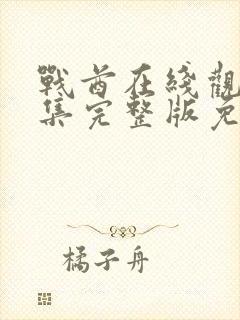 戰酋在綫觀
集完整版免
橘子舟